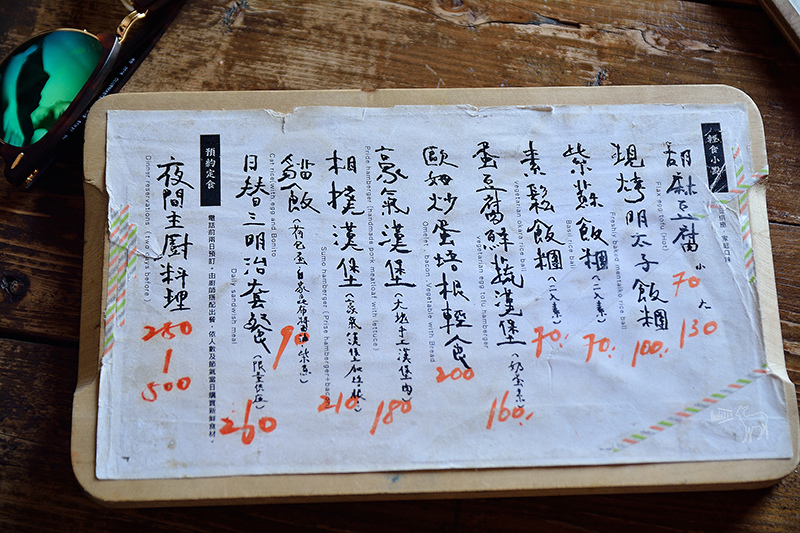 輕食小點
胡麻豆腐 小 70 大 130
Flake egg tofu (hot)
現烤明太子飯糰 100.
Freshly baked mentaiko rice ball
紫蘇飯糰(二入素) 70.
Basil rice ball
素鬆飯糰(二入素) 70.
vegetarian chare rice ball
蛋豆腐鮮蔬漢堡(奶蛋素) 160.
vegetarian egg tofu hamberger
歐姆炒蛋培根輕食 200
Omelet , bacon , Vegetable with Bread
豪氣漢堡(大塊手工漢堡肉) 180
Pride hamberger (handmade pork meatloaf with lettuce)
相撲漢堡(豪氣漢堡加培根) 210
Sumo hamberger (Prise hamberger+bacon)
貓飯 90
Cat rice with egg and Bonito
日替三明治套餐(限量供應) 260
Daily sandwish meal
預約定食
電話前兩日預訂,由廚師搭配出餐,依人數及節氣當日購買新鮮食材。
夜間主廚料理 250 | 500
Dinner reservations (two days before)